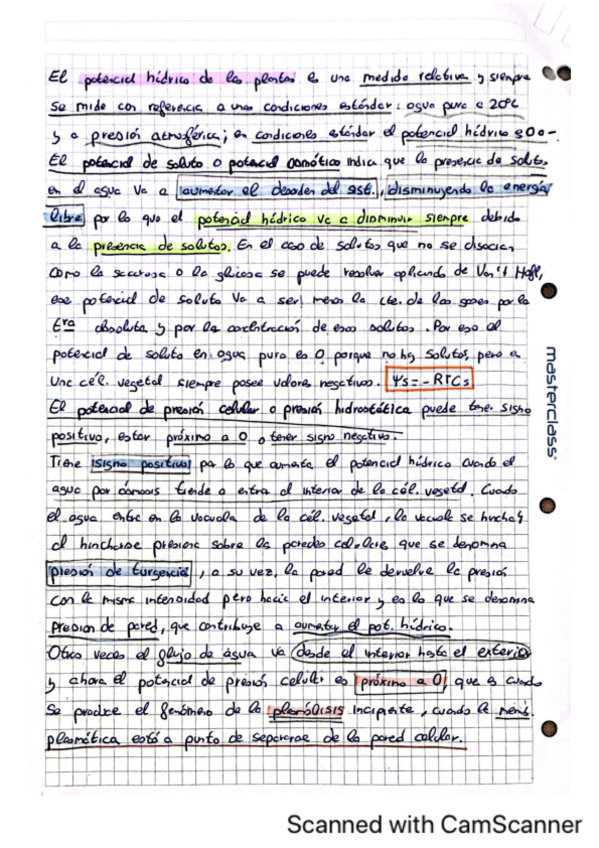 El potencial hídrico de las plantas es una medida relativa y siempre
se mide con referencia a unas condiciones estándar: agua pura a 20ºC
y a presión atmosférica; en condiciones estándar el potencial hídrico es 0.
El potencial de soluto o potencial osmótico indica que la presencia de solutos
en el agua va a aumentar el desorden del sist., disminuyendo la energía
libre por lo que el potencial hídrico va a disminuir siempre debido
a la presencia de solutos. En el caso de solutos que no se disocian
como la sacarosa o la glucosa se puede resolver aplicando de Van't Hoff,
ese potencial de soluto va a ser menos la cte. de los gases por la
Tra absoluta y por la concentración de esos solutos. Por eso el
potencial de soluto en agua pura es 0 porque no hay solutos, pero en
una cél. vegetal siempre posee valores negativos. Ψs = -RTCs
El potencial de presión celular o presión hidrostática puede tener signo
positivo, estar próximo a 0 o tener signo negativo.
Tiene signo positivo por lo que aumenta el potencial hídrico cuando el
agua por ósmosis tiende a entrar al interior de la cél. vegetal. Cuando
el agua entre en la vacuola de la cél. vegetal, la vacuola se hincha y
al hincharse presiona sobre las paredes celulares que se denomina
presión de turgencia, a su vez, la pared le devuelve la presión
con la misma intensidad pero hacia el interior y es lo que se denomina
presión de pared, que contribuye a aumentar el pot. hídrico.
Otras veces el flujo de agua va desde el interior hasta el exterior
y ahora el potencial de presión celular es próximo a 0, que es cuando
se produce el fenómeno de la plasmólisis incipiente, cuando la memb.
plasmática está a punto de separarse de la pared celular.
masterclass
Scanned with CamScanner